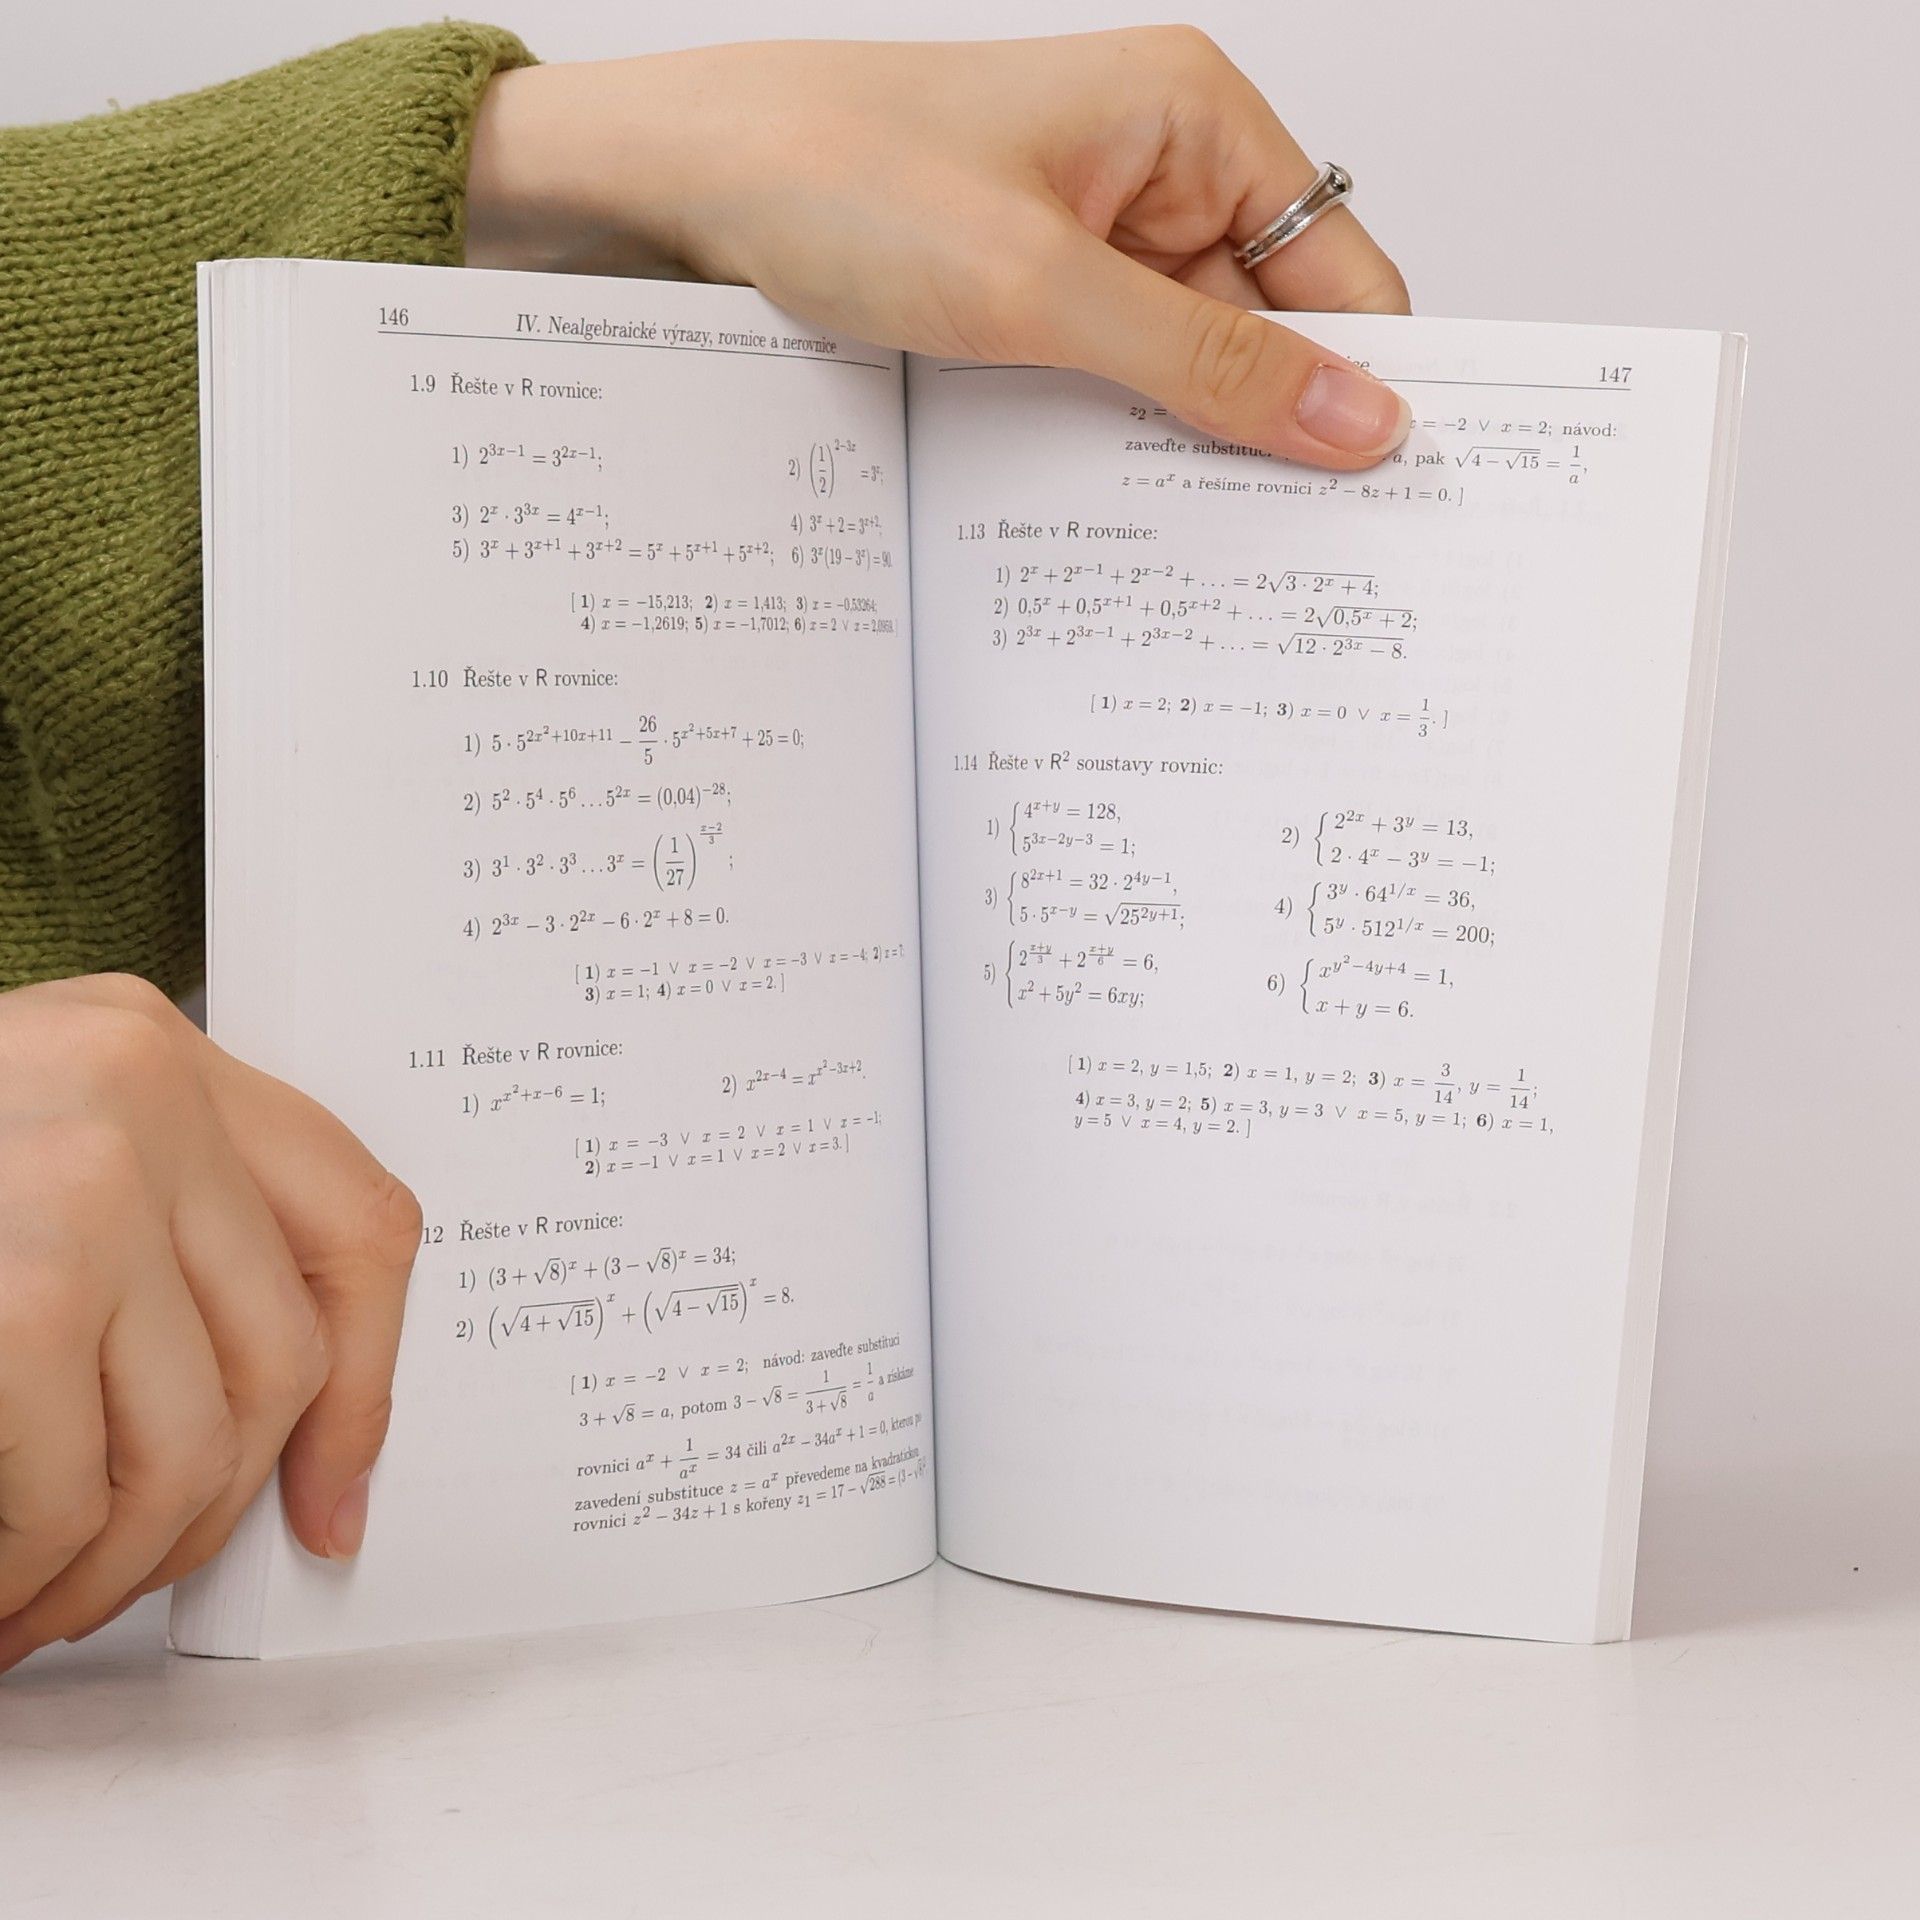 146 IV. Nealgebraické výrazy, rovnice a nerovnice
1.9 Řešte v R rovnice:
1) 2^{3x−1} = 3^{2x−1}; 2) (1/2)^{2−3x} = 3^x;
3) 2^x · 3^{3x} = 4^{x−1}; 4) 3^x + 2 = 3^{x+2};
5) 3^x + 3^{x+1} + 3^{x+2} = 5^x + 5^{x+1} + 5^{x+2}; 6) 3^x(19 − 3^x) = 90.
[ 1) x = −15,213; 2) x = 1,413; 3) x = −0,53264;
4) x = −1,2619; 5) x = −1,7012; 6) x = 2 ∨ x = 2,0959.]
1.10 Řešte v R rovnice:
1) 5 · 5^{2x²+10x+11} − 26/5 · 5^{x²+5x+7} + 25 = 0;
2) 5² · 5⁴ · 5⁶ … 5^{2x} = (0,04)^{−28};
3) 3¹ · 3² · 3³ … 3^x = (1/27)^{(x−2)/3};
4) 2^{3x} − 3 · 2^{2x} − 6 · 2^x + 8 = 0.
[ 1) x = −1 ∨ x = −2 ∨ x = −3 ∨ x = −4; 2) x = 7;
3) x = 1; 4) x = 0 ∨ x = 2. ]
1.11 Řešte v R rovnice:
1) x^{x²+x−6} = 1; 2) x^{2x−4} = x^{x²−3x+2}.
[ 1) x = −3 ∨ x = 2 ∨ x = 1 ∨ x = −1;
2) x = −1 ∨ x = 1 ∨ x = 2 ∨ x = 3. ]
12 Řešte v R rovnice:
1) (3 + √8)^x + (3 − √8)^x = 34;
2) (√(4 + √15))^x + (√(4 − √15))^x = 8.
[ 1) x = −2 ∨ x = 2; návod: zaveďte substituci
3 + √8 = a, potom 3 − √8 = 1/(3 + √8) = 1/a a získáme
rovnici a^x + 1/a^x = 34 čili a^{2x} − 34a^x + 1 = 0, kterou po
zavedení substituce z = a^x převedeme na kvadratickou
rovnici z² − 34z + 1 s kořeny z₁ = 17 − √288 = (3 − √8)²
147
z₂ = x = −2 ∨ x = 2; návod:
zaveďte a, pak √(4 − √15) = 1/a,
z = a^x a řešíme rovnici z² − 8z + 1 = 0. ]
1.13 Řešte v R rovnice:
1) 2^x + 2^{x−1} + 2^{x−2} + … = 2√(3 · 2^x + 4);
2) 0,5^x + 0,5^{x+1} + 0,5^{x+2} + … = 2√(0,5^x + 2);
3) 2^{3x} + 2^{3x−1} + 2^{3x−2} + … = √(12 · 2^{3x} − 8).
[ 1) x = 2; 2) x = −1; 3) x = 0 ∨ x = 1/3. ]
1.14 Řešte v R² soustavy rovnic:
1) { 4^{x+y} = 128, 2) { 2^{2x} + 3^y = 13,
5^{3x−2y−3} = 1; 2 · 4^x − 3^y = −1;
3) { 8^{2x+1} = 32 · 2^{4y−1}, 4) { 3^y · 64^{1/x} = 36,
5 · 5^{x−y} = √(25^{2y+1}); 5^y · 512^{1/x} = 200;
5) { 2^{(x+y)/3} + 2^{(x+y)/6} = 6, 6) { x^{y²−4y+4} = 1,
x² + 5y² = 6xy; x + y = 6.
[ 1) x = 2, y = 1,5; 2) x = 1, y = 2; 3) x = 3/14, y = 1/14;
4) x = 3, y = 2; 5) x = 3, y = 3 ∨ x = 5, y = 1; 6) x = 1,
y = 5 ∨ x = 4, y = 2. ]